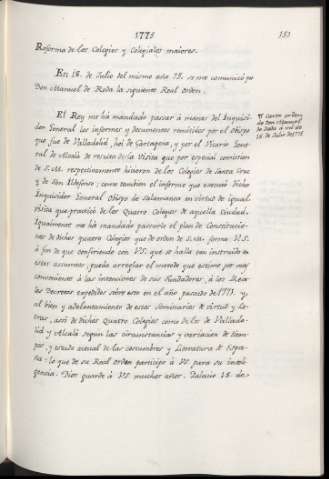 1775
151
Reforma de los Colegios y Colegiales maiores.
En 18. de Julio del mismo año 75. se me comunicó por
Don Manuel de Roda la siguiente Real orden.
El Rey me há mandado passar á manos del Inquisi-
dor General los informes y documentos remitidos por el Obispo
que fue de Valladolid, hoi de Cartagena, y por el Vicario Gene-
ral de Alcalá de resultas de la Visita que por especial comision
de S.M. respectivamente hicieron de los Colegios de Santa Cruz
y de San Ildefonso; como tambien el informe que executó dicho
Inquisidor General Obispo de Salamanca en virtud de igual
visita que practicó de los Quatro Colegios de aquella Ciudad.
Igualmente me há mandado passarle el plan de Constitucio-
nes de dichos quatro Colegios que de orden de S.M. formó V.S.
á fin de que confiriendo con V.S. que se halla tan instruido en
este assunto, pueda arreglar el metodo que estime por mas
conveniente á las intenciones de sus fundadores, á los Rea-
les Decretos expedidos sobre esto en el año passado de 1771. y
al bien y adelantamiento de estos Seminarios de virtud y Le-
tras, assi de dichos Quatro Colegios como de los de Vallado-
lid y Alcalá segun las circunstancias y variacion de tiem-
pos, y estado actual de las costumbres y Literatura de Espa-
ña: lo que de su Real orden participo á V.S. para su inteli-
gencia. Dios guarde á V.S. muchos años. Palacio 18. de
¶ Carta orden
de Don Manuel
de Roda
18 de Julio de 1775